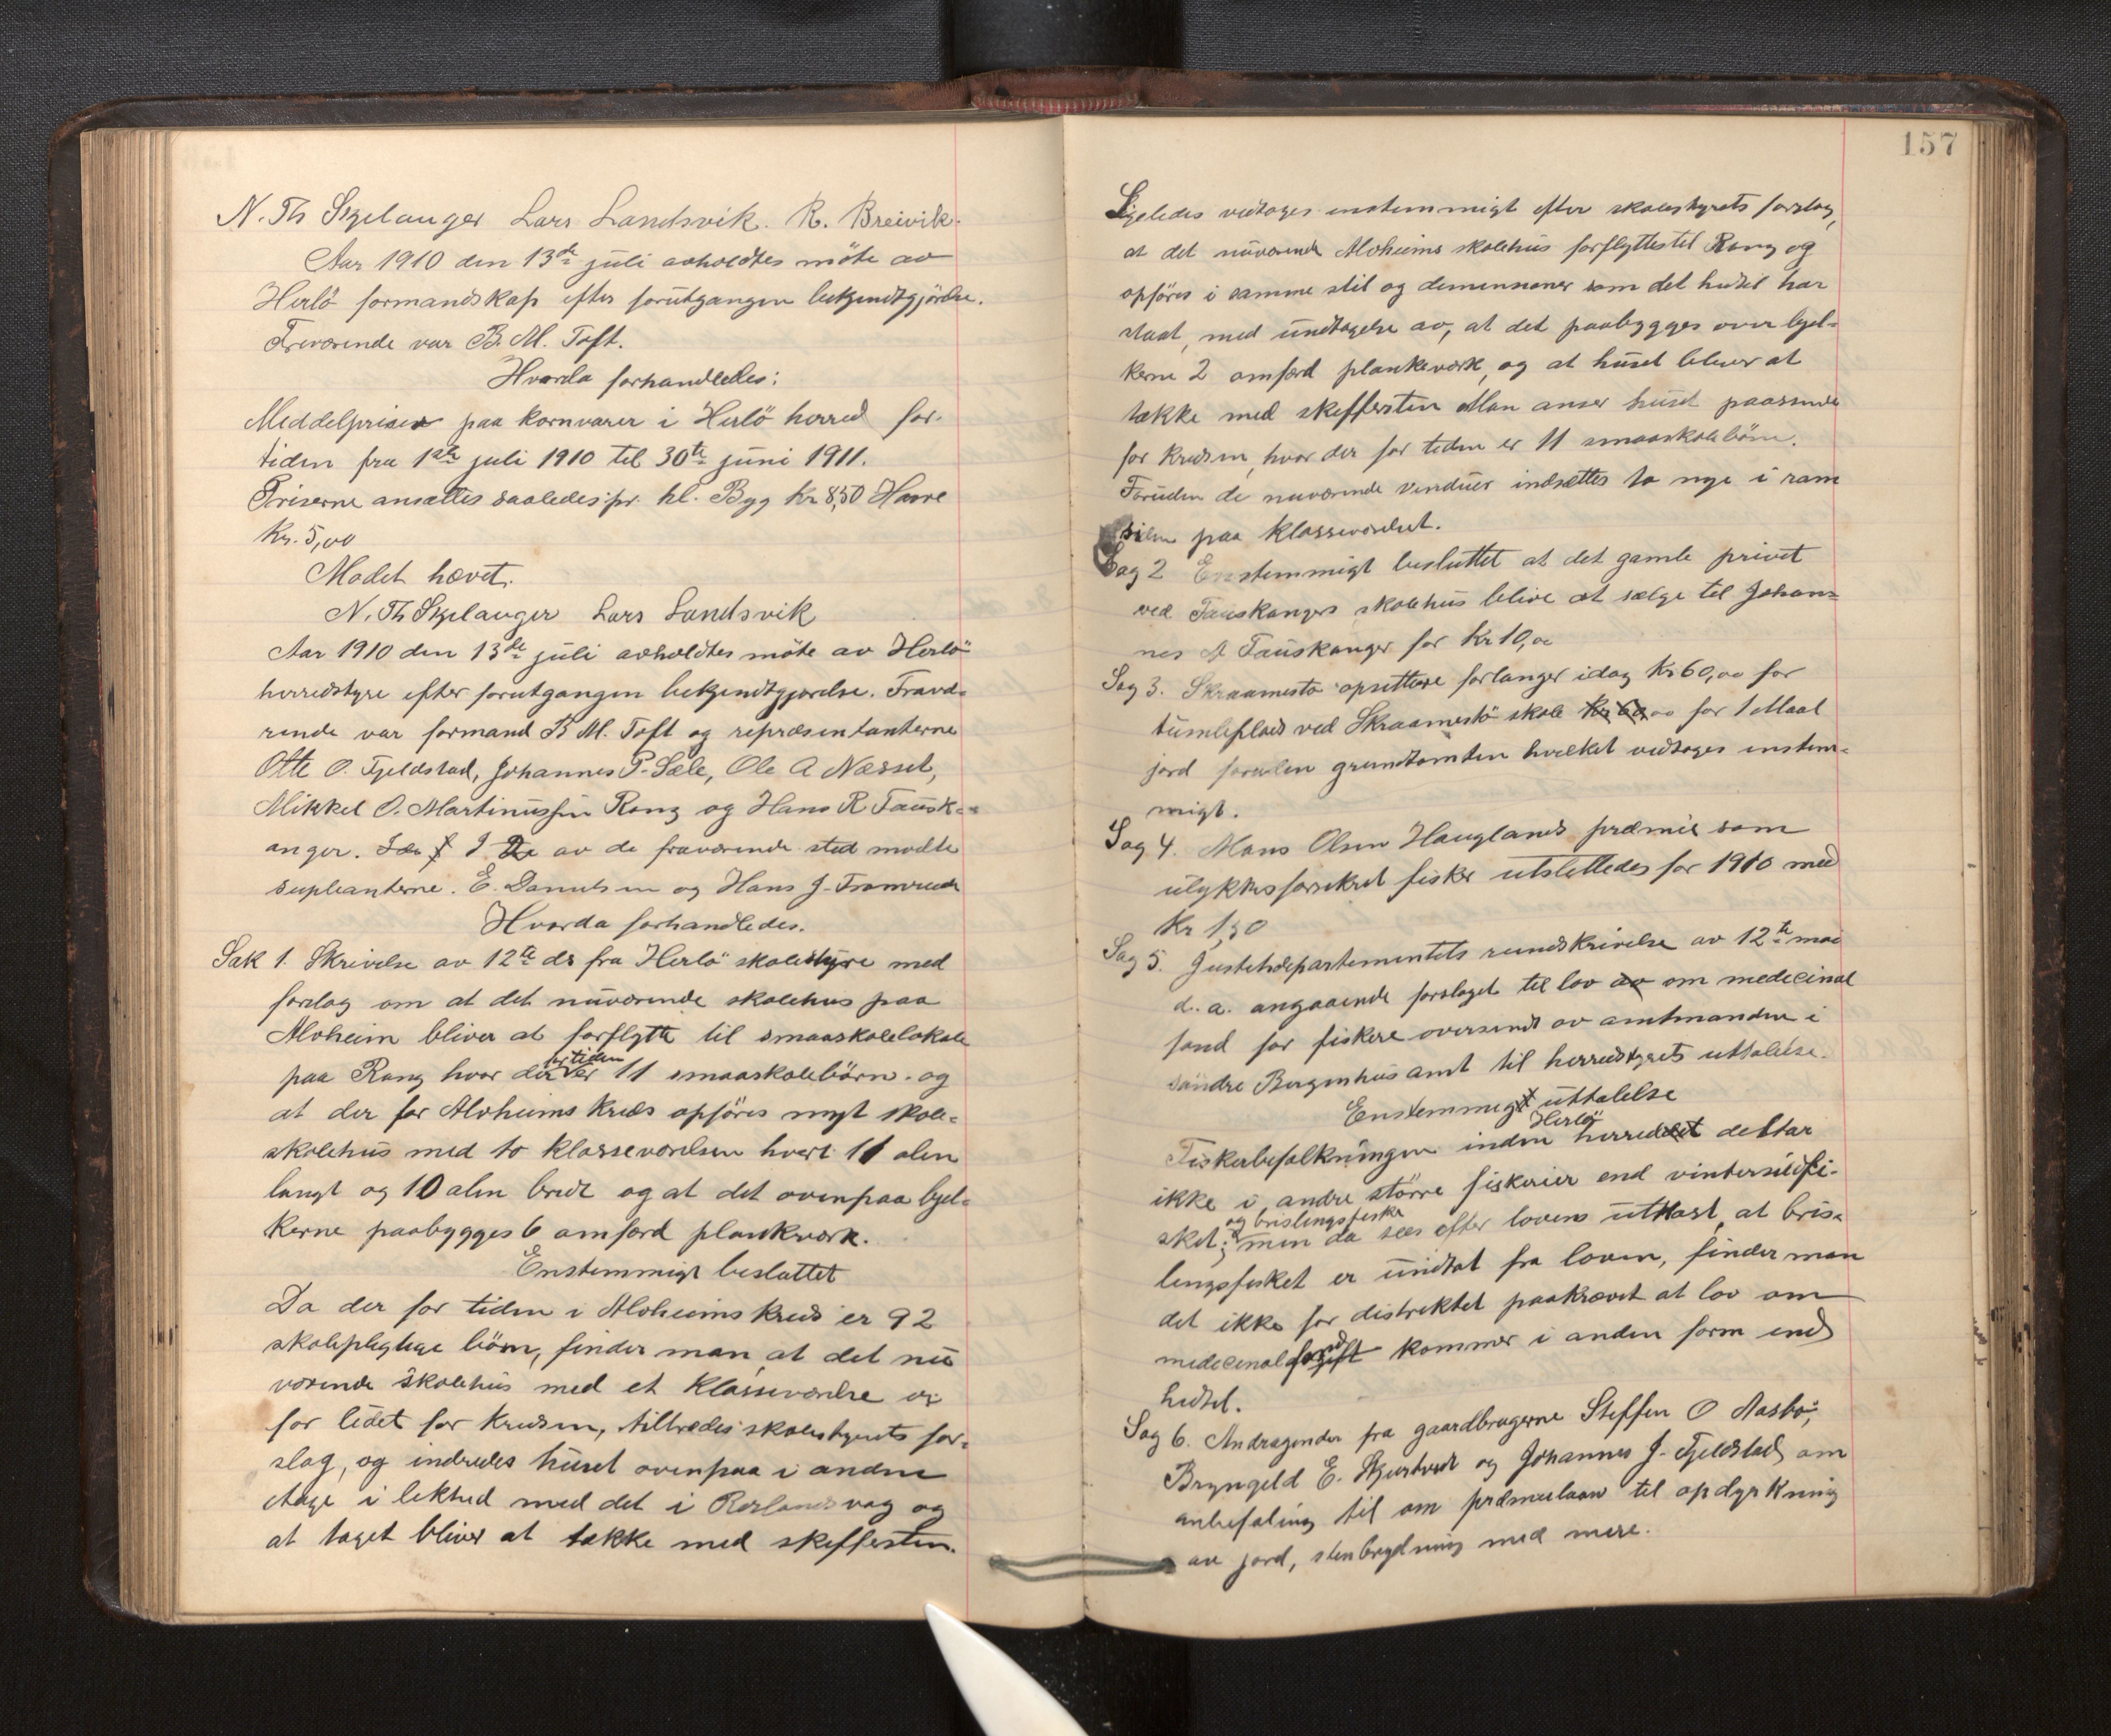 N. Th Skjelanger Lars Landsvik. R. Breivik.
Aar 1910 den 13de juli avholdtes möte av
Herlö formandskap efter forutgangen bekjendtgjörelse.
Fraværende var B. M. Toft.
Hvorda forhandledes:
Meddelpriser paa kornvarer i Herlö herred for
tiden fra 1ste juli 1910 til 30te juni 1911.
Priserne ansættes saaledes: pr. hl. Byg Kr 8,50 Havre
Kr. 5,00
Mødet hævet.
N. Th Skjelanger Lars Landsvik
Aar 1910 den 13de juli avholdtes möte av Herlö
herredstyre efter forutgangen bekjendtgjørelse. Fravæ-
rende var formand B M. Toft og repræsentanterne
Otte O. Fjeldstad, Johannes P. Sæle, Ole A Næsset,
Mikkel O. Martinussen Rong og Hans R Fausk-
anger. I av de fraværende sted mødte
supleanterne. E. Danielsen og Hans J.
Hvorda forhandledes.
Sak 1. Skrivelse av 12te ds fra Herlö skolestyre med
forslag om at det nuværende skolehus paa
Alvheim bliver at forflytte til smaaskolelokale
paa Rong hvor der for tiden er 11 smaaskolebörn. og
at der for Alvheims kreds opföres nyt skole-
skolehus med to klasseværelsen hvert 11 alen
langt og 10 alen bredt og at det ovenpaa bjel-
kerne paabygges 6 omfard plankværk.
Enstemmigt besluttet
Da der for tiden i Alvheims kreds er 92
skolepligtige börn, finder man at det nu
værende skolehus med et klasseværelse er
for lidet for kredsen, tiltrædes skolestyrets for-
slag, og indredes huset ovenpaa i anden
etage i likhed med det i Røslandsvåg og
at taget bliver at tække med skeffersten.
157
Ligeledes vedtoges enstemmigt efter skolestyrets forslag,
at det nuværende Alvheims skolehus forflyttes til Rong og
opföres i samme stil og demensioner som det hidtil har
staat, med undtagelse av, at det paabygges over bjel-
kerne 2 omfard plankeværk, og at huset bliver at
tække med skeffersten Man anser huset paassende
for kredsen, hvor der for tiden er 11 smaaskolebörn.
Foruden de nuværende venduer indsættes to nye i ram
siden paa klasseværelset.
Sag 2 Enstemmigt besluttet at det gamle privet
ved Fauskangers skolehus blive at sælge til Johan-
nes A Fauskanger for Kr 10,00
Sag 3. Skraamestø opsittere forlanger idag Kr 60,00 for
tumleplads ved Skraamestö skole Kr 60,00 for 1 Maal
jord foruden grundtomten hvilket vedtoges enstem-
migt.
Sag 4. Mons Olsen Hauglands præmie som
ulykkesforsikret fisker utslettedes for 1910 med
Kr 1,30
Sag 5. Justitsdepartementets rundskrivelse av 12te mai
d. a. angaaende forslaget til lov av om medicinal
fond for fiskere oversendt av amtmanden i
söndre Bergenhus amt til herredstyrets uttalelse.
Enstemmigt uttalelse
Fiskerbefolkningen inden Herlö herredet deltar
ikke i andre större fiskerier end vintersildfi-
sket; og brislingsfiske men da sees efter lovens utkast, at bris-
lengsfisket er undtat fra loven, finder man
det ikke for distriktet paakrævet at lov om
medicinalfond avgift kommer i anden form end
hidtil.
Sag 6. Andragender fra gaardbrugerne Steffen O Aasbö,
Bryngeld E. Hjertvedt og Johannes J. Fjeldstad om
anbefaling til om præmielaan til opdyrkning
av jord, stenbrydning med mere.